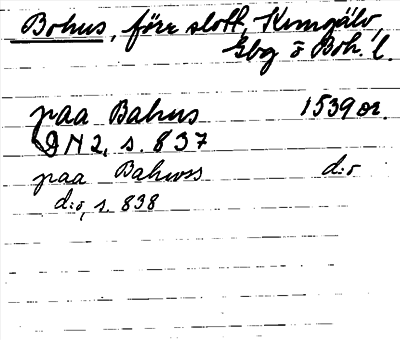 Bohus, förr slott, Kungälv,
Gbg o Boh. l.
paa Bahus 1539 or.
DN 2, s. 837
paa Bahuss d:o
d:o, s. 838